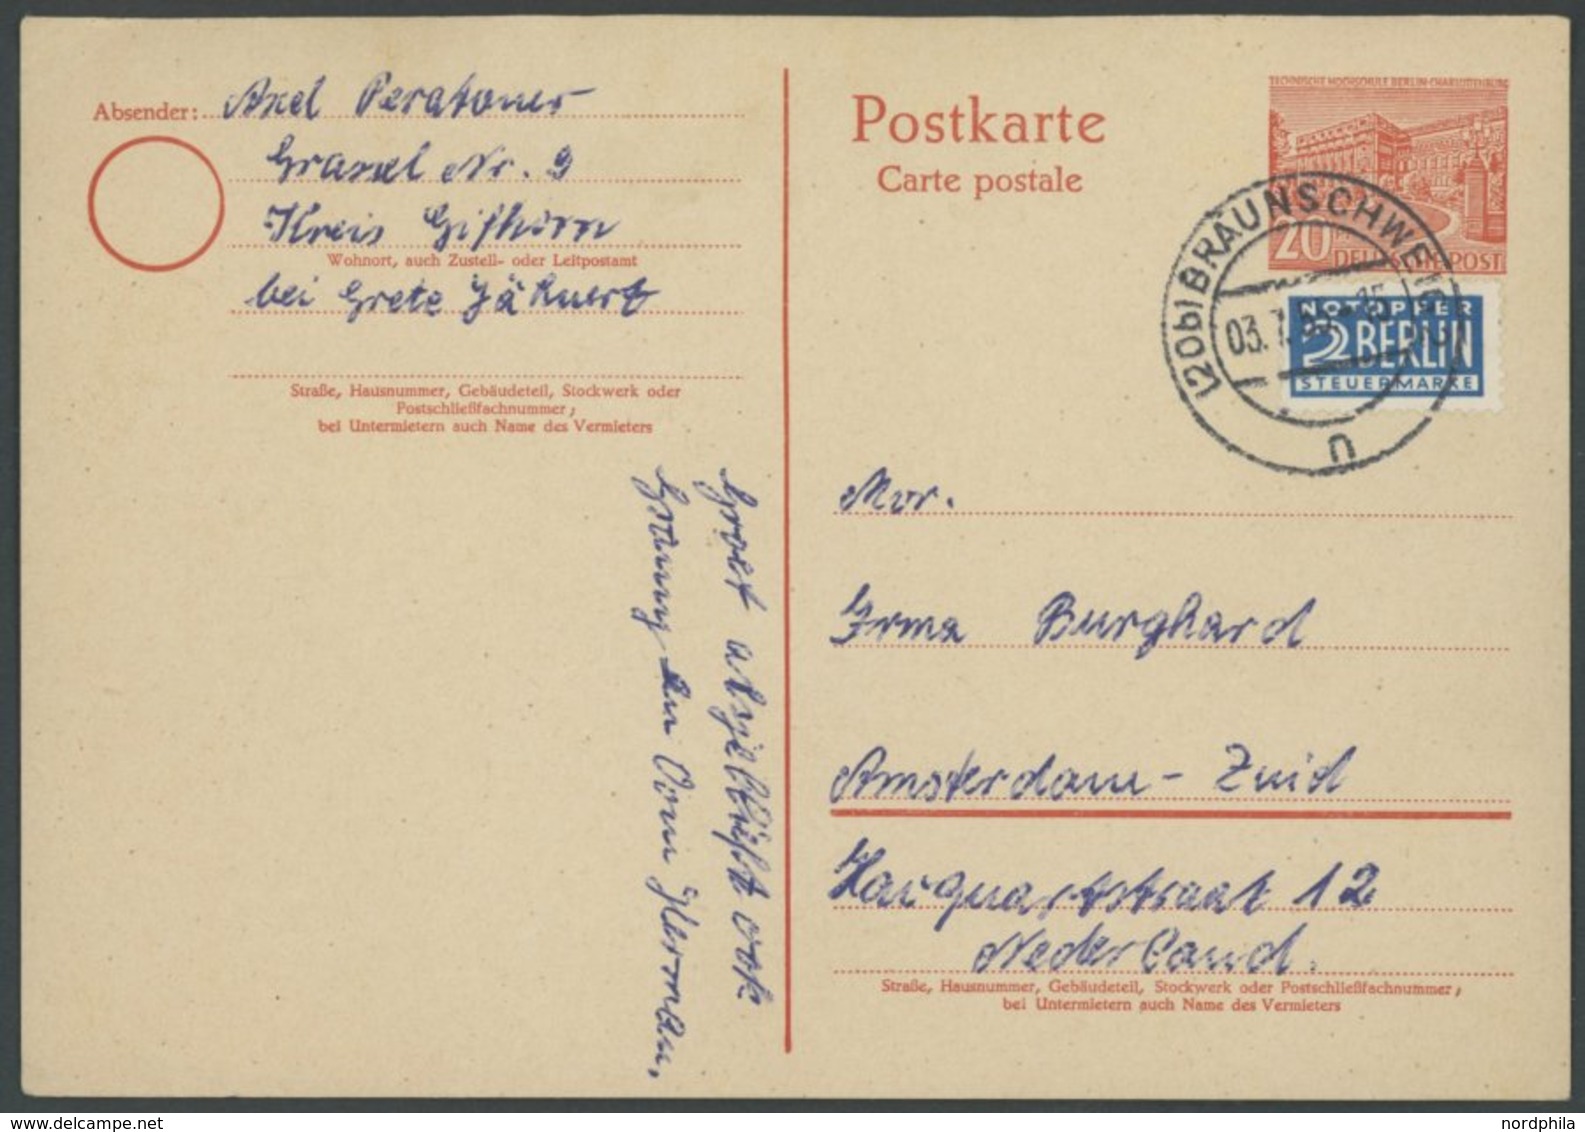 Absender: Axel Peratoner
Grassel Nr. 9
Kreis Gifhorn
Wohnort, auch Zustell- oder Leitpostamt
bei Grete Jäknert
Straße, Hausnummer, Gebäudeteil, Stockwerk oder
Postschließfachnummer;
bei Untermietern auch Name des Vermieters
Groet
ook
Hermann,
Postkarte
Carte postale
TECHNISCHE HOCHSCHULE BERLIN-CHARLOTTENBURG
20 DEUTSCHE POST
(20b) BRAUNSCHWEIG
03.7.
NOTOPFER
2 BERLIN
STEUERMARKE
Mvr.
Irma Burghard
Amsterdam - Zuid
Hacquartstraat 12
Nederland.
Straße, Hausnummer, Gebäudeteil, Stockwerk oder Postschließfachnummer;
bei Untermietern auch Name des Vermieters
nordphila